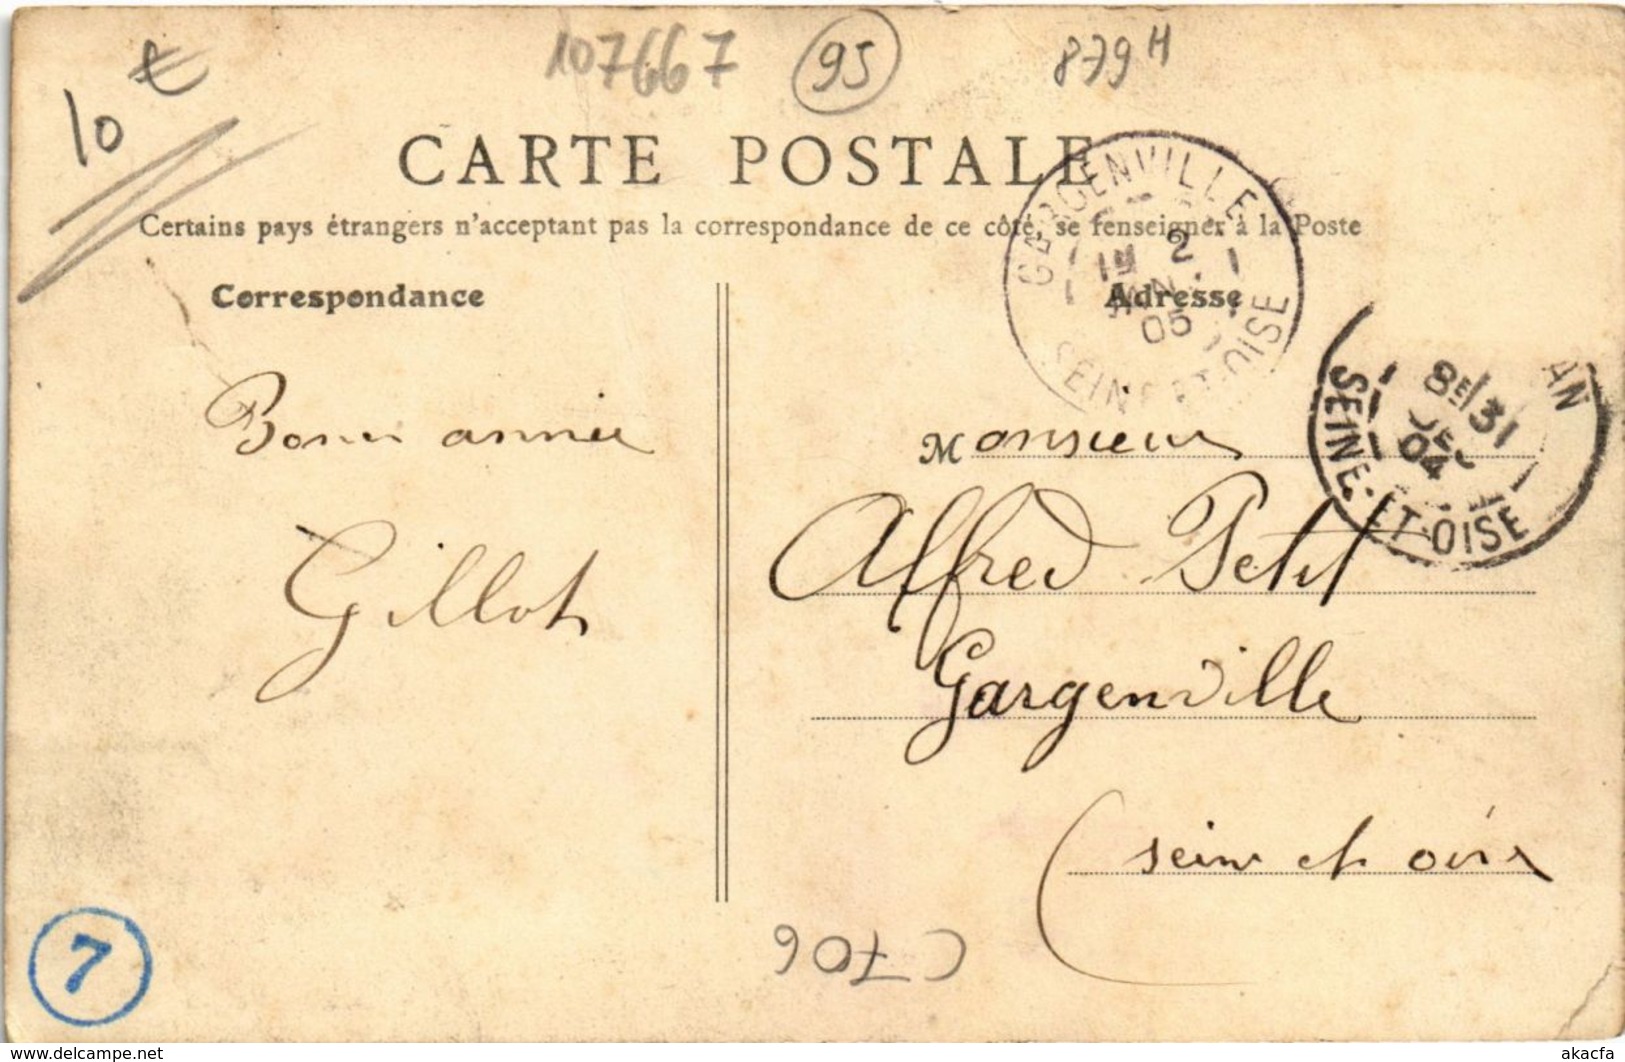 10 €
107667
95
879 H
CARTE POSTALE
Certains pays étrangers n'acceptant pas la correspondance de ce côté, se renseigner à la Poste
Correspondance
Adresse
GARGENVILLE
2
JANV.
05
SEINE-ET-OISE
AN
8E/31
DEC
04
SEINE-ET-OISE
Bonne année
Gillot
Monsieur
Alfred Petit
Gargenville
(seine et oise
C 706
7
www.delcampe.net
akacfa